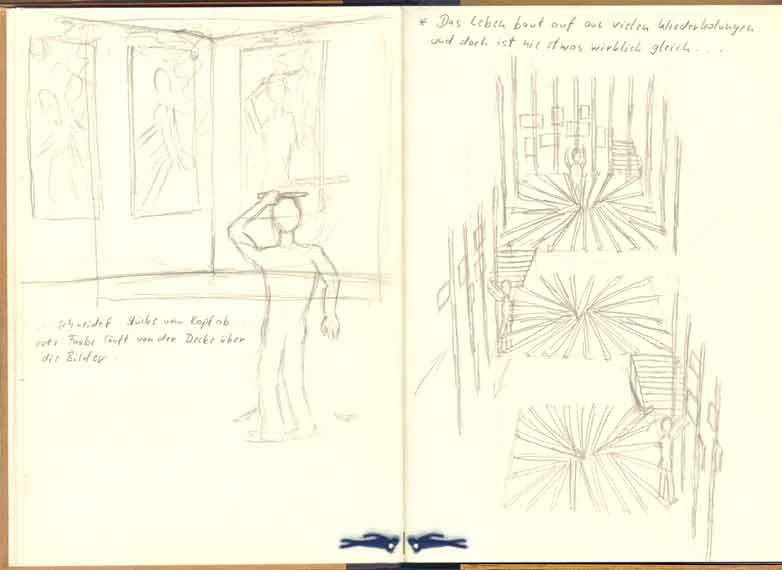 ... schneidet Stücke vom Kopf ab ...
rote Farbe läuft von der Decke über
die Bilder.
* Das Leben baut auf aus vielen Wiederholungen
und doch ist nie etwas wirklich gleich ...